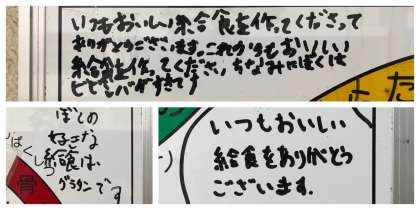 いつもおいしい給食を作ってくださって
ありがとうございます。これからもおいしい
給食を作ってください。ちなみにぼくは
ビビンバがすきです
た
よ
ぼくの
好きな
給食は
グラタンです
ばくしつ
骨
いつもおいしい
給食をありがとう
ございます.